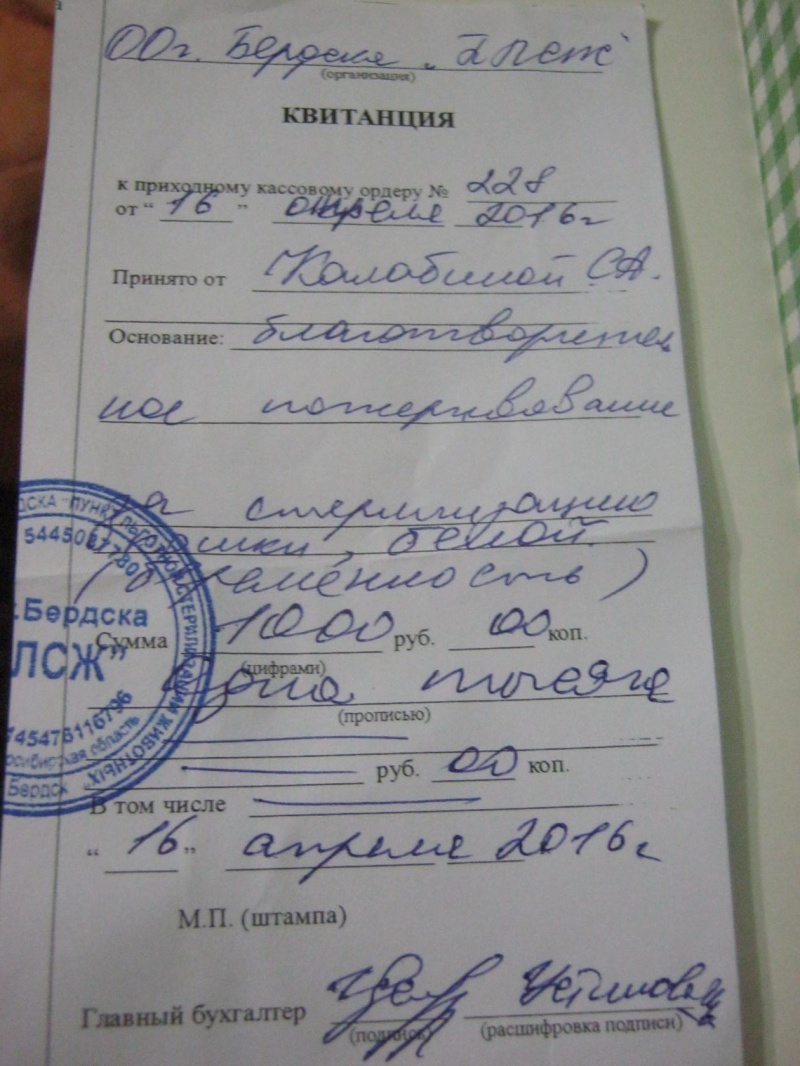 ОО г. Бердска „ПЛСЖ"
(организация)
КВИТАНЦИЯ
к приходному кассовому ордеру № 228
от “ 16 ” апреля 2016 г
Принято от Калабиной С.А.
Основание: благотворител
ное пожертвование
на стерилизацию
кошки, белой
(беременность)
Сумма 1000 руб. 00 коп.
(цифрами)
Одна тысяча
(прописью)
руб. 00 коп.
В том числе
“ 16 ” апреля 2016 г
М.П. (штампа)
Главный бухгалтер
(подпись) (расшифровка подписи)
ПУНКТ ЛЬГОТНОЙ СТЕРИЛИЗАЦИИ ЖИВОТНЫХ"
г.Бердска
ЛСЖ”
область
Бердск